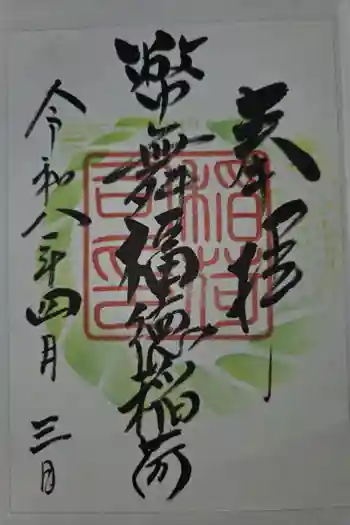 奉拝
幣舞福徳稲荷
令和八年四月三日
稲荷